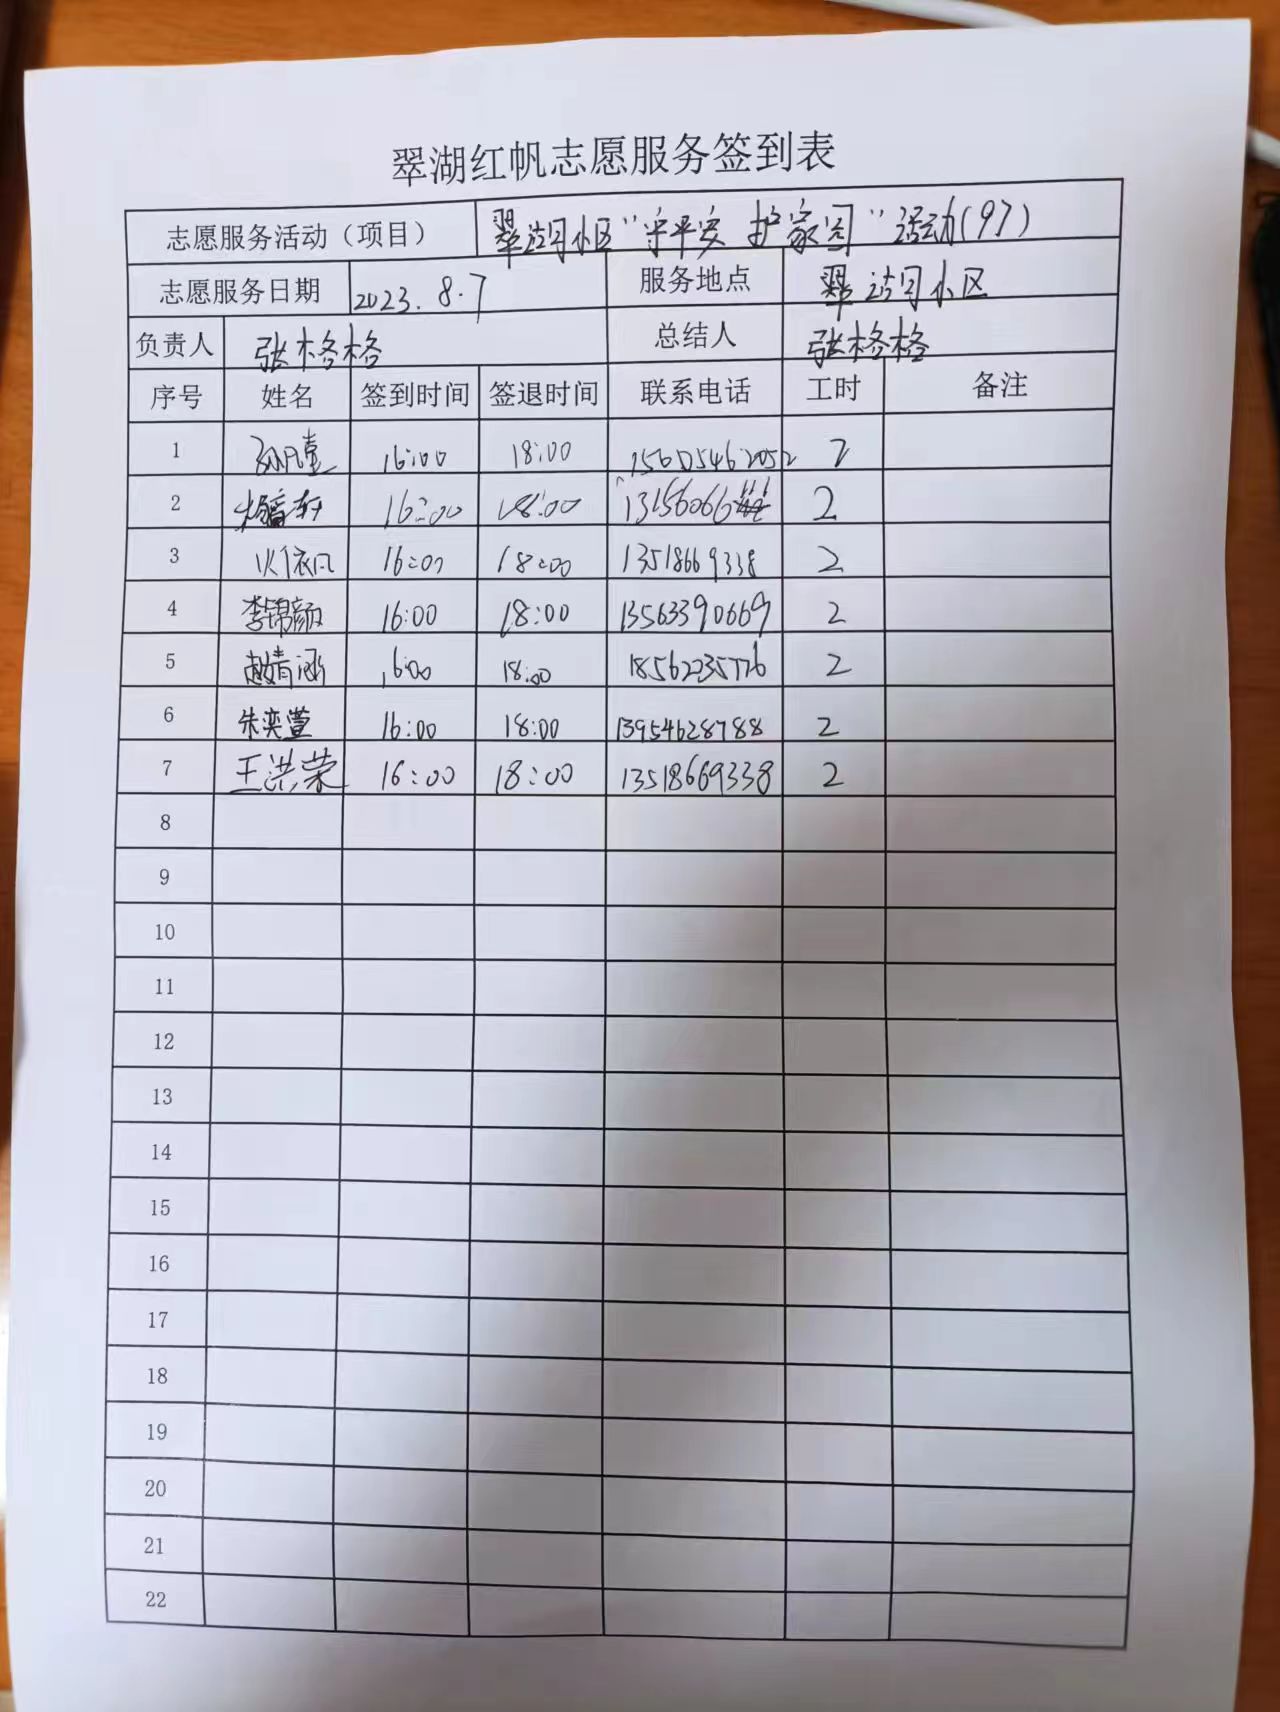 翠湖红帆志愿服务签到表
志愿服务活动（项目） 翠湖小区“守平安 护家园”活动(97)
志愿服务日期 2023.8.7 服务地点 翠湖小区
负责人 张格格 总结人 张格格
序号 姓名 签到时间 签退时间 联系电话 工时 备注
1 16:00 18:00 2
2 16:00 18:00 13156066 2
3 16:00 18:00 13518669338 2
4 李锦颜 16:00 18:00 13563390669 2
5 赵婧涵 16:00 18:00 18562235776 2
6 朱奕萱 16:00 18:00 13954628788 2
7 王洪荣 16:00 18:00 13518669338 2
8
9
10
11
12
13
14
15
16
17
18
19
20
21
22